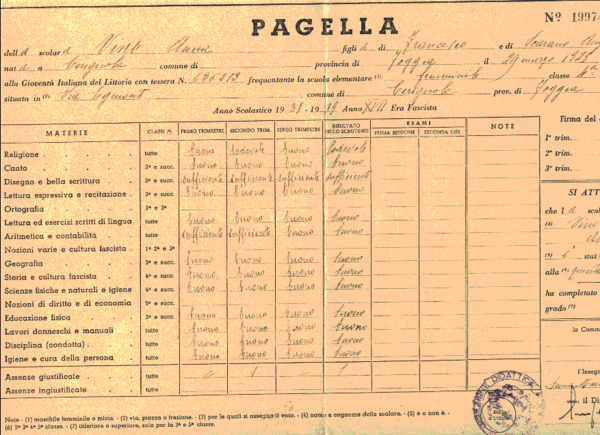 PAGELLA
Nº 1997
dell d scolar d Vinti Anna figli d di Francesco e di Scarano
nat d a Cerignola comune di provincia di Foggia il 29 marzo
alla Gioventù Italiana del Littorio con tessera N. 636513 frequentante la scuola elementare (1) femminile classe
situata in (2) Via comune di Cerignola prov. di Foggia
Anno Scolastico 1938 - 1939 Anno XVII Era Fascista
MATERIE CLASSI (*) PRIMO TRIMESTRE SECONDO TRIM. TERZO TRIMESTRE RISULTATO DELLO SCRUTINIO ESAMI PRIMA SESSIONE SECONDA SESS. NOTE
Religione tutte buono lodevole buono lodevole
Canto 3ª e succ. buono buono buono buono
Disegno e bella scrittura 3ª e succ. sufficiente sufficiente sufficiente sufficiente
Lettura espressiva e recitazione 3ª e succ. buono buono buono buono
Ortografia 2ª e 3ª
Lettura ed esercizi scritti di lingua tutte buono buono buono buono
Aritmetica e contabilità tutte sufficiente sufficiente buono buono
Nozioni varie e cultura fascista 1ª 2ª e 3ª
Geografia 3ª e succ. buono buono buono buono
Storia e cultura fascista 4ª e succ. buono buono buono buono
Scienze fisiche e naturali e igiene 4ª e succ. buono buono buono buono
Nozioni di diritto e di economia 5ª e succ.
Educazione fisica 3ª e succ. buono buono buono buono
Lavori donneschi e manuali tutte buono buono buono buono
Disciplina (condotta) tutte buono buono buono buono
Igiene e cura della persona tutte buono buono buono buono
Assenze giustificate tutte
Assenze ingiustificate tutte
Note - (1) maschile femminile o mista. - (2) via, piazza o frazione. - (3) per le quali si assegna il voto. - (4) nome e cognome dello scolaro. - (5) è o non è. -
(6) 2ª 3ª 4ª 5ª classe. - (7) inferiore o superiore, solo per la 3ª e 5ª classe.
Firma del
1º trim.
2º trim.
3º trim.
SI ATT
che l d scolar
(4) Vinti
(5) è stat
alla (6)
ha completato
grado (7)
In Comu
l'Inseg
Il Di
DIDATTICA